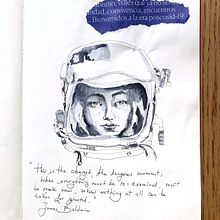 nidad, convivencia, encuentros
Bienvenidos a la era poscovid-19.
"This is the charged, the dangerous moment,
when everything must be re-examined, must
be made new; when nothing at all can be
taken for granted."
James Baldwin